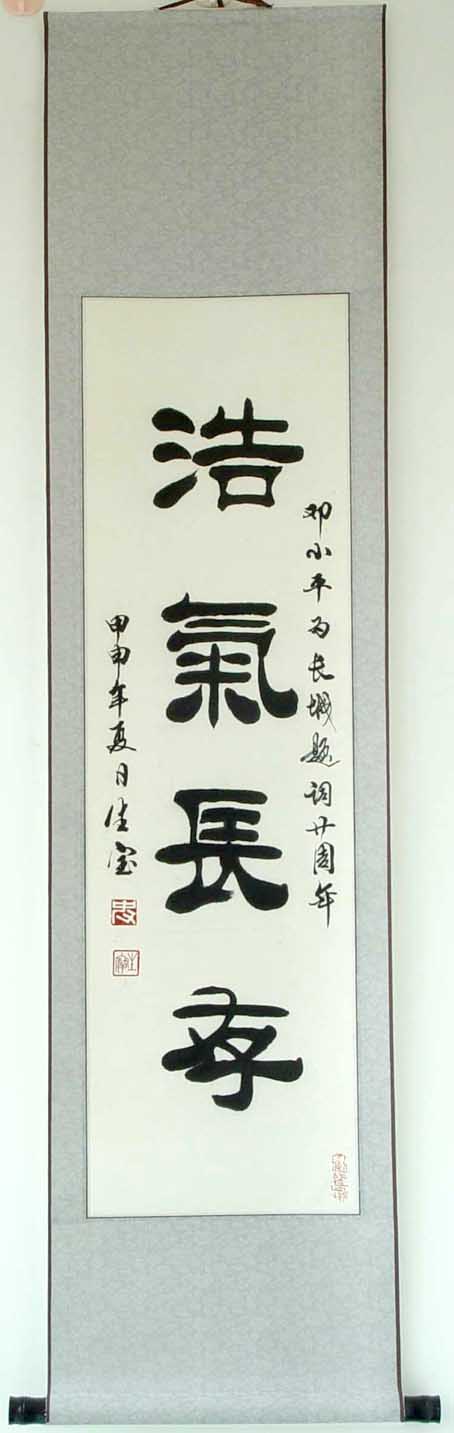 邓小平为长城题词廿周年
浩氣長存
甲申年夏日佳宝